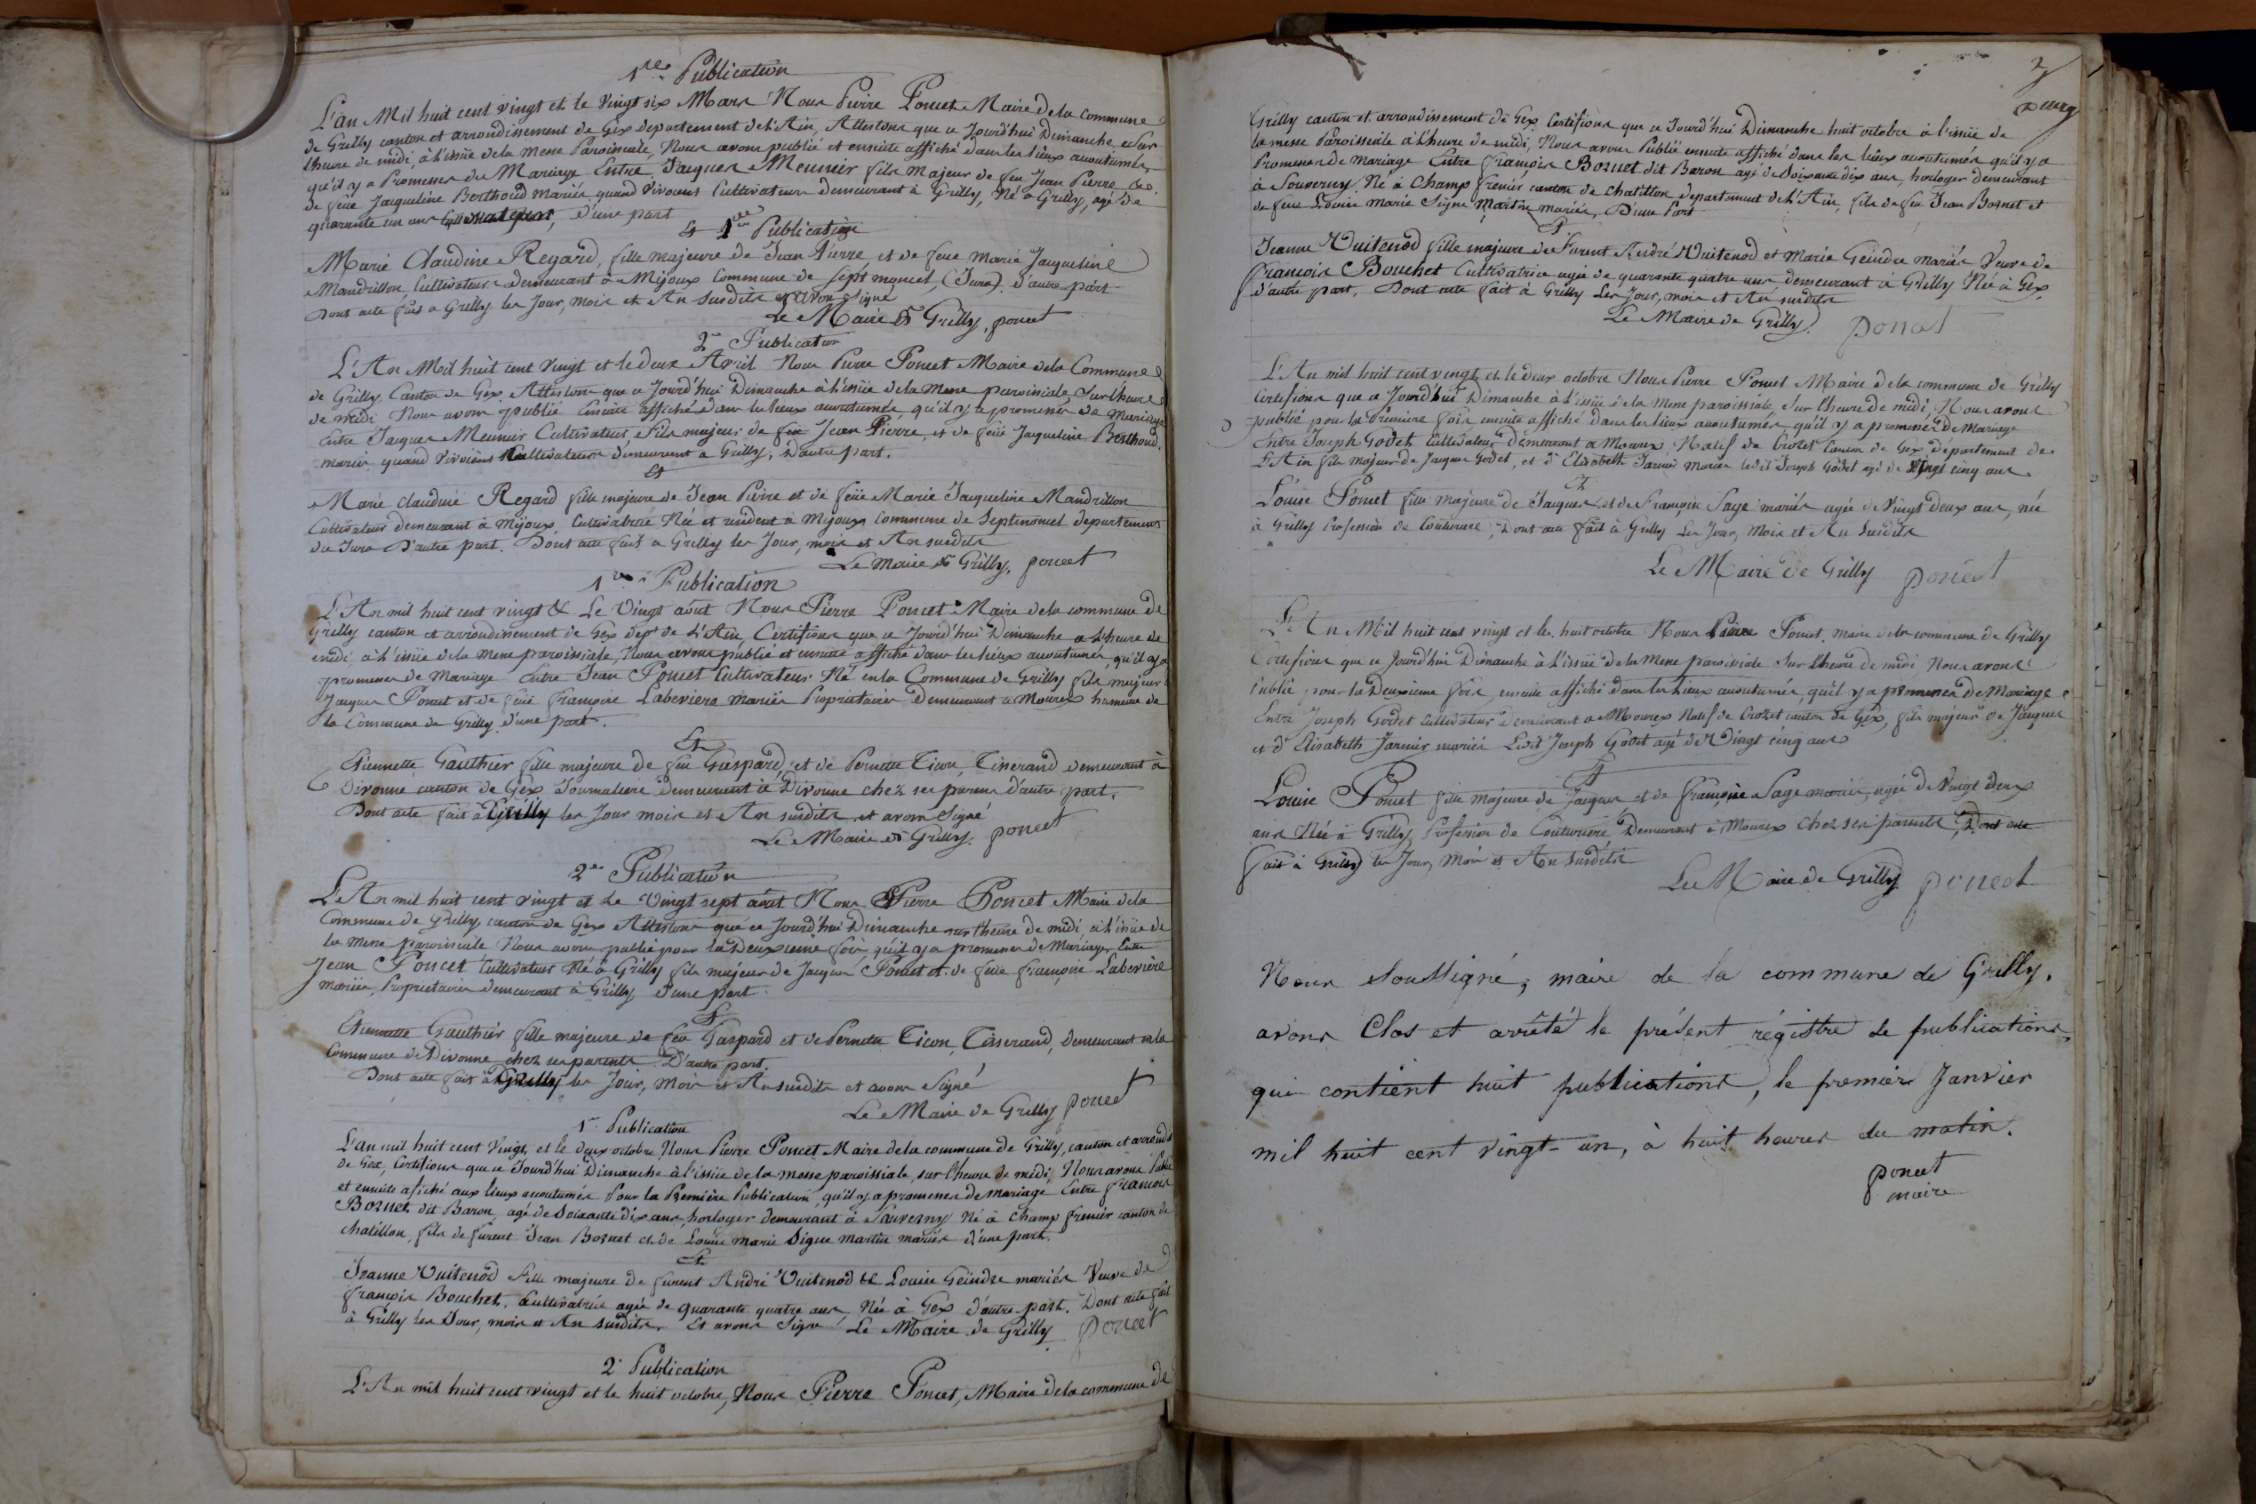 1re Publication
L'an Mil huit cent vingt et le vingt six Mars Nous Pierre Poncet Maire de la commune
de Grilly canton et arrondissement de Gex departement de l'Ain, Attestons que ce Jourd'hui Dimanche sur
l'heure de midi, à l'issüe de la Messe Paroissiale, Nous avons publié et ensuite affiché dans les lieux accoutumés
qu'il y a Promesses de Mariage Entre Jacques Meunier fils majeur de feu Jean Pierre &
de feüe Jacqueline Berthoud Mariés quand vivoient Cultivateurs demeurant à Grilly, Né à Grilly, agé de
quarante un ans, d'une part
Et 1re Publication
Marie Claudine Regard, fille majeure de Jean Pierre et de feue Marie Jacqueline
Mandrillon Cultivateurs Demeurant à Mijoux Commune de Sept moncel (Jura). d'autre part
Dont acte fait à Grilly les Jour, mois et An susdits et avons Signé
Le Maire de Grilly, poncet
2e Publication
L'An Mil huit cent vingt et le deux Avril Nous Pierre Poncet Maire de la Commune
de Grilly Canton de Gex Attestons que ce Jourd'hui Dimanche à l'issüe de la Messe paroissiale Sur l'heure
de midi Nous avons publié Ensuite affiché dans les lieux accoutumés, qu'il y a promesses de Mariage
Entre Jacques Meunier Cultivateur, Fils majeur de feu Jean Pierre, et de feüe Jacqueline Berthoud
mariés quand vivoient Cultivateurs demeurant à Grilly, D'autre part.
Et
Marie claudine Regard fille majeure de Jean Pierre et de feüe Marie Jacqueline Mandrillon
Cultivateur demeurant à Mijoux, Cultivatrice Née et résident à Mijoux commune de Septmoncel departement
du Jura D'autre part. Dont acte fait à Grilly les Jour, mois et An susdits
Le maire de Grilly. poncet
1re Publication
L'An mil huit cent vingt & Le Vingt aôut Nous Pierre Poncet Maire de la commune de
Grilly canton et arrondissement de Gex dept de L'Ain, Certifions que ce Jourd'hui Dimanche a l'heure de
midi à l'issüe de la messe paroissiale, Nous avons publié et ensuite affiché dans les lieux accoutumés, qu'il y a
promesses de Mariage Entre Jean Poncet Cultivateur Né en la Commune de Grilly fils majeur
Jacques Poncet et de feüe Françoise Labeviere mariés Proprietaires Demeurant à Mourex hameau de
la Commune de Grilly d'une part.
Et
Etiennette Gauthier fille majeure de feu Gaspard, et de Pernette Ticon, Tisserand demeurant à
Divonne canton de Gex Journaliere Demeurant à Divonne chez ses parens d'autre part.
Dont acte fait à Grilly les Jour mois et An susdits et avons Signé
Le Maire de Grilly. poncet
2e Publication
L'An mil huit cent vingt et Le Vingt sept août Nous Pierre Poncet Maire de la
Commune de Grilly, canton de Gex Attestons que ce Jourd'hui Dimanche sur l'heure de midi, à l'issüe de
la Messe paroissiale Nous avons publié pour la Deuxieme fois qu'il y a promesses de Mariage Entre
Jean Poncet Cultivateur Né à Grilly fils majeur de Jacques Poncet et de feüe Françoise Labeviere
mariés, Proprietaires demeurant à Grilly D'une part.
Et
Etiennette Gauthier fille majeure de feu Gaspard et de Pernette Ticon, Tisserand, demeurant en la
Commune de Divonne chez ses parents D'autre part.
Dont acte fait à Grilly les Jour, mois et An susdits et avons Signé
Le Maire de Grilly poncet
1re Publication
L'an mil huit cent vingt, et le deux octobre Nous Pierre Poncet Maire de la commune de Grilly, canton et arrondt
de Gex, Certifions que ce Jourd'hui Dimanche à l'issüe de la messe paroissiale, sur l'heure de midi, Nous avons Publié
et ensuite afiché aux lieux accoutumés Pour la Premiére Publication qu'il y a promesses de mariage Entre François
Boznet dit Baron agé de Soixante dix ans, horloger demeurant à Sauverny Né à Champ fremier canton de
chatillon, fils de furent Jean Boznet et de Louise marie Sigue Martin mariés d'une part.
Et
Jeanne Vuitenod Fille majeure de furent André Vuitenod & Louise Geindre mariés Veuve de
françois Bouchet, Cultivatrice agée de quarante quatre ans Née à Gex d'autre part. Dont acte fait
à Grilly les Jour, mois et An susdits. Et avons Signé Le Maire de Grilly poncet
2e Publication
L'An mil huit cent vingt et le huit octobre, Nous Pierre Poncet, Maire de la commune de
Grilly canton et arrondissement de Gex Certifions que ce Jourd'hui Dimanche huit octobre à l'issüe de
la messe Paroissiale à l'heure de midi, Nous avons Publié ensuite affiché dans les lieux accoutumés qu'il y a
Promesses de mariage Entre françois Boznet dit Baron agé de Soixante dix ans, horloger demeurant
à Souverny, Né à Champ fremier canton de chatillon departement de l'Ain, fils de feu Jean Boznet et
de feue Louise Marie Sigue Martin mariés, D'une Part
Et
Jeanne Vuitenod fille majeure de Furent André Vuitenod et Marie Geindre mariés Veuve de
françois Bouchet Cultivatrice agée de quarante quatre ans demeurant à Grilly Née à Gex
d'autre part, Dont acte fait à Grilly Les Jour, mois et An susdits
Le Maire de Grilly poncet
L'An mil huit cent vingt et le deux octobre Nous Pierre Poncet Maire de la commune de Grilly
Certifions que ce Jourd'hui Dimanche à l'issüe de la Messe paroissiale, Sur l'heure de midi, Nous avons
publié pour la Première fois ensuite affiché dans les lieux accoutumés qu'il y a promesses De Mariage
Entre Joseph Godet, Cultivateur demeurant a Mourex Natif de Crozet Canton de Gex, département de
L'Ain fils majeur de Jacques Godet, et d'Elisabeth Jarnier Mariés ledit Joseph Godet agé de Vingt cinq ans
Et
Louise Poncet fille majeure de Jacques et de Françoise Sage mariés agée de Vingt deux ans, née
à Grilly Profession de Couturiere, Dont acte fait à Grilly Les Jour, Mois et An Susdits
Le Maire de Grilly poncet
L'An Mil huit cent vingt et le huit octobre Nous Pierre Poncet, maire de la commune de Grilly
Certifions que ce Jourd'hui Dimanche à L'issüe de la Messe paroissiale Sur l'heure de midi Nous avons
Publié pour la Deuxieme fois, ensuite affiché dans les Lieux accoutumés, qu'il y a promesses de Mariage
Entre Joseph Godet Cultivateur Demeurant a Mourex Natif de Crozet canton de Gex, fils majeur de Jacques
et d'Elisabeth Jarnier mariés Ledit Joseph Godet agé de Vingt cinq ans
Et
Louise Poncet fille majeure de Jacques et de Françoise Sage mariés, agée de Vingt deux
ans Née à Grilly, Profession de Couturiere, Demeurant à Mourex chez ses parents, Dont acte
fait à Grilly les Jour, Mois et An susdits
Le Maire de Grilly poncet
Nous Soussigné, maire de la commune de Grilly.
avons Clos et arrêté le présent régistre de publications
qui contient huit publications, le premier Janvier
mil huit cent vingt-un, à huit heures du matin.
poncet
maire